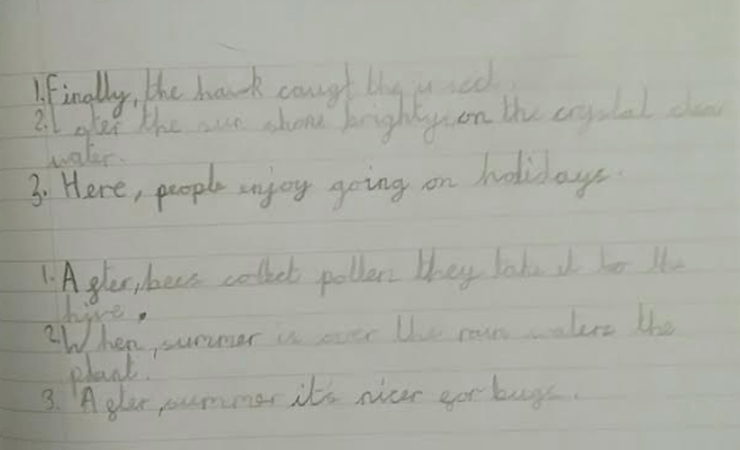 1. Finally, the hawk caugt the
2. Later the sun shone brighty on the crystal clear
water.
3. Here, people enjoy going on holidays.
1. After, bees collect pollen they take it to the
hive.
2. When, summer is over the rain waters the
plant.
3. After, summer it's nicer for bugs.